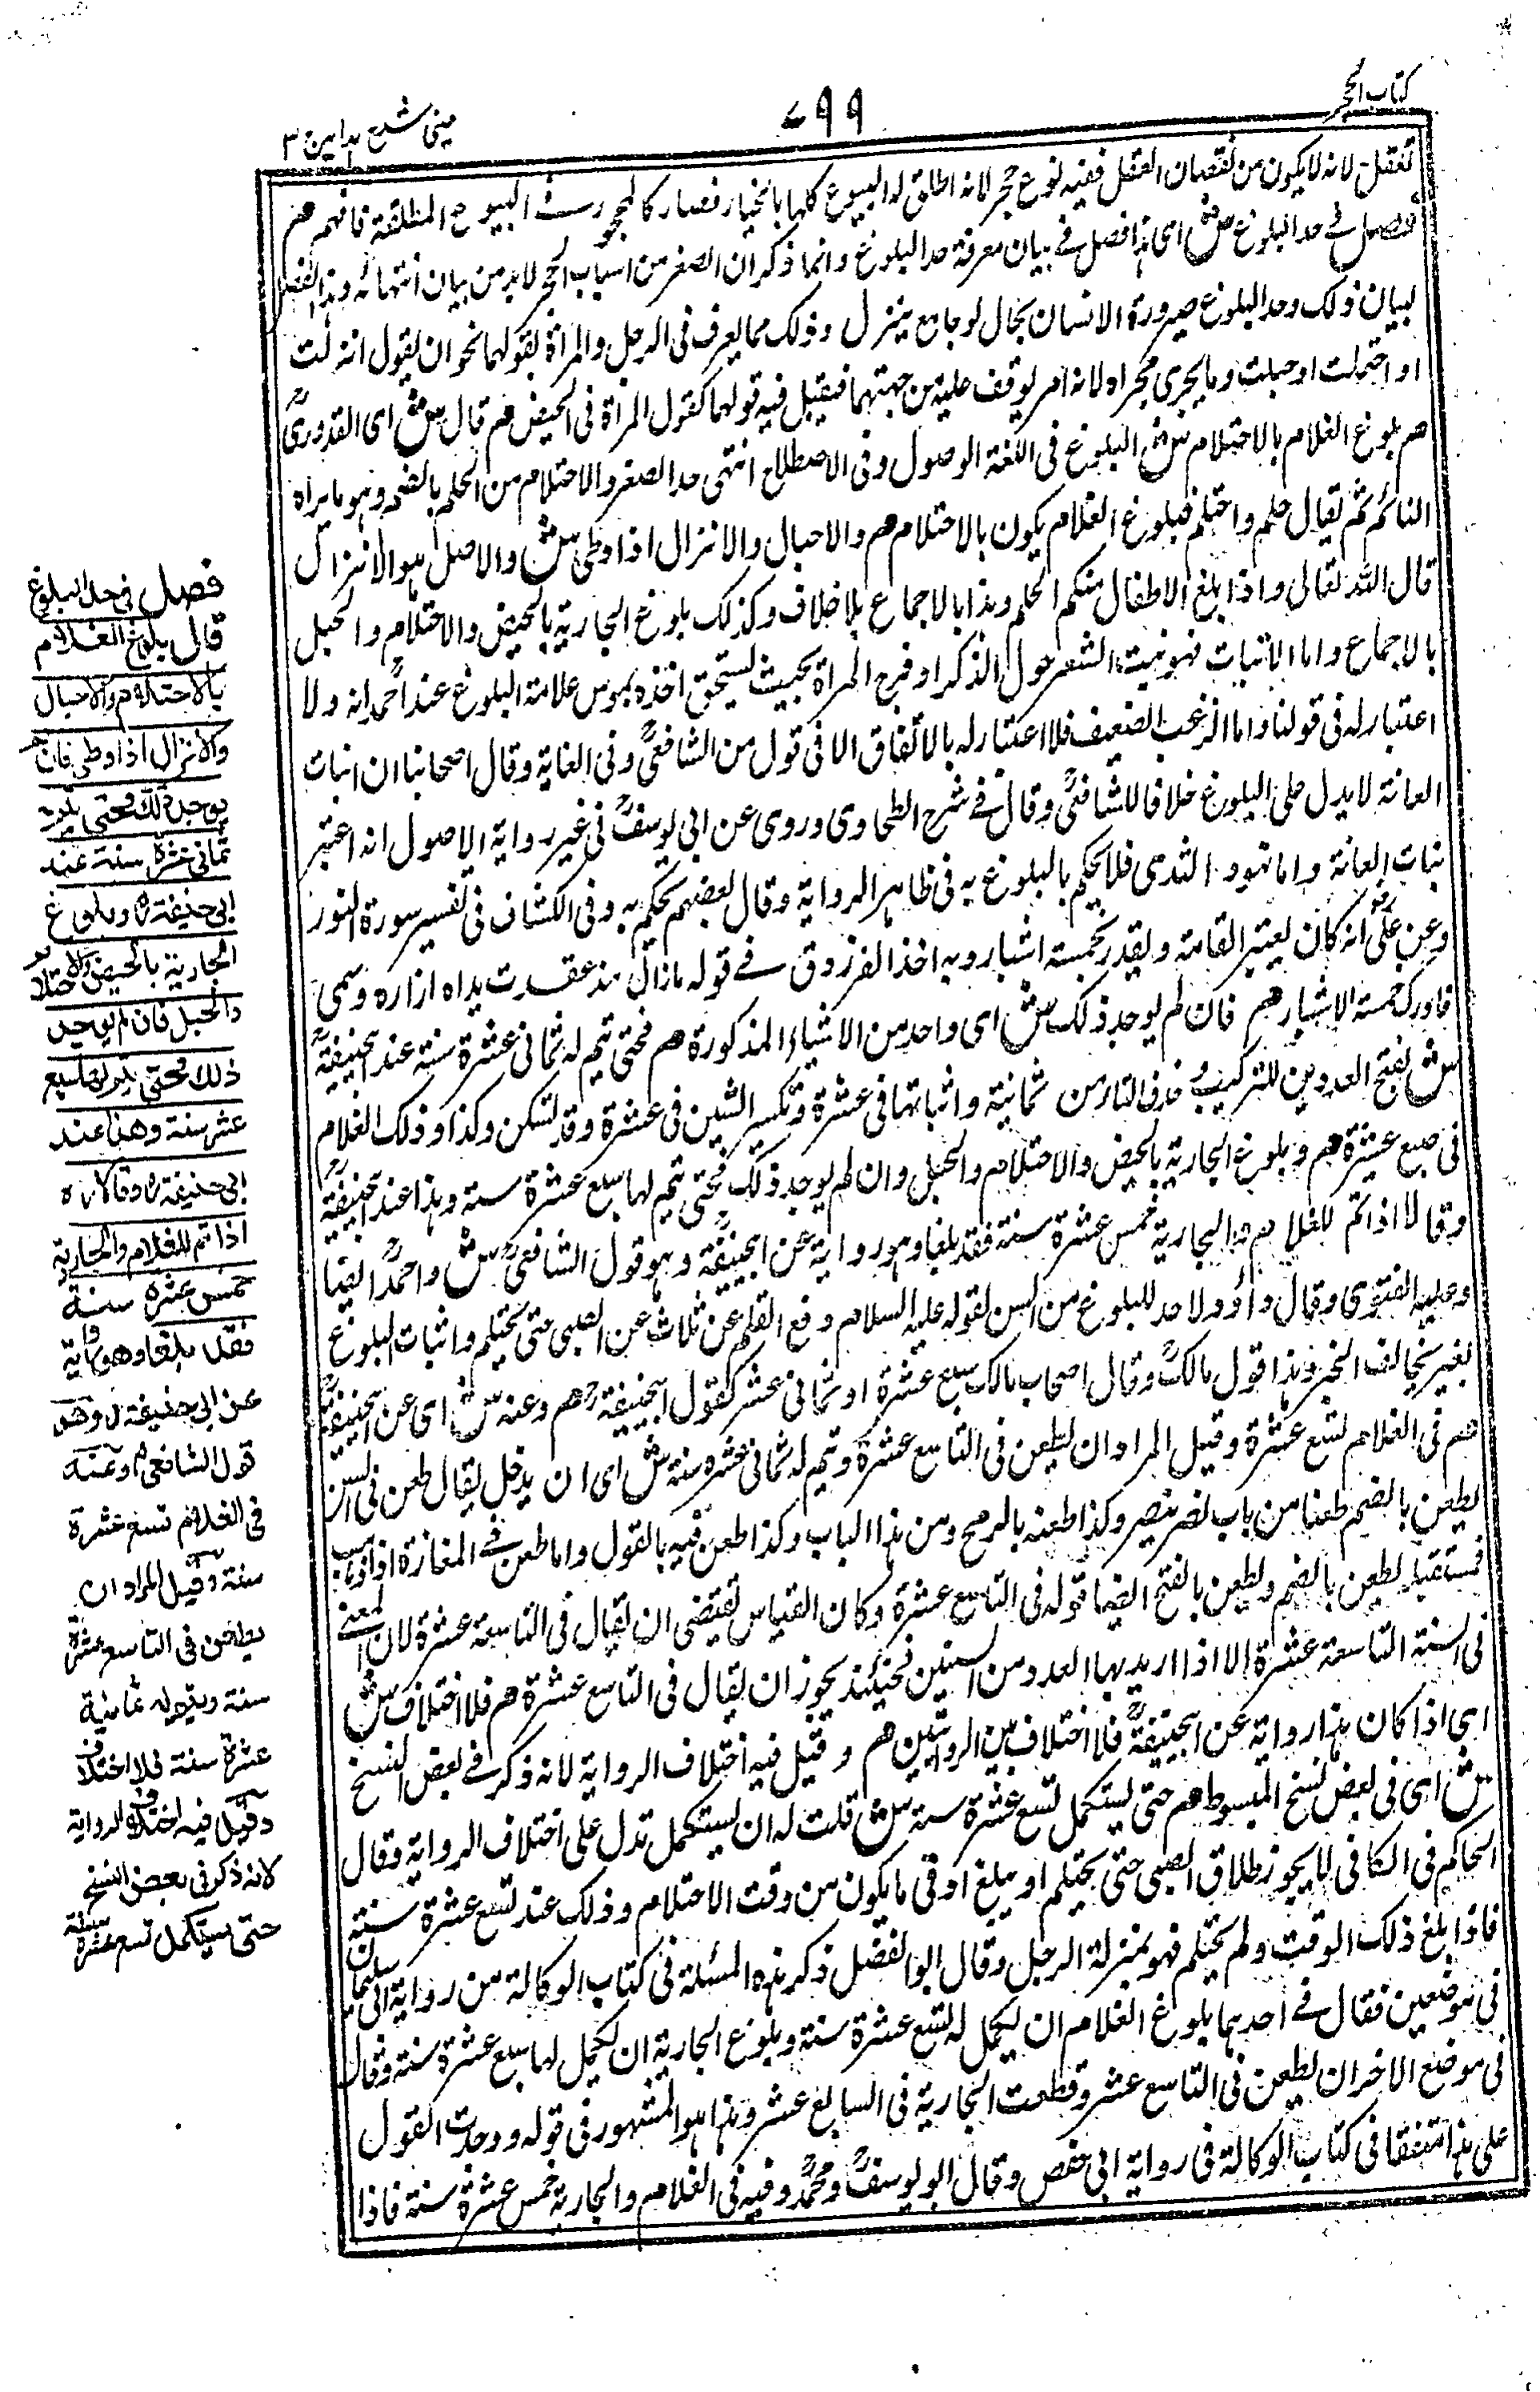 كتاب الحجر
٧٩٩
عینی شرح ہدایہ ج ٣
لانه لا يكون من نقصان العقل ففيه نوع حجر لانه اطلق له البيوع كلها بالخيار فصار كالمحجور البيوع المطلقة فافهم هم
فصل فى حد البلوغ ش اى هذا فصل فى بيان معرفة حد البلوغ وانما ذكر ان الصغر من اسباب الحجر لابد من بيان انتهائه وهذا الفصل
لبيان ذلك وحد البلوغ صيرورة الانسان بحال لو جامع ينزل وذلك مما يعرف فى الرجل والمرأة بقولهما نحو ان يقول انزلت
او احتلمت او حبلت وما يجرى مجراه لانه امر يوقف عليه من جهتهما فيقبل فيه قولهما كقول المرأة فى الحيض هم قال ش اى القدورى
هم بلوغ الغلام بالاحتلام ش البلوغ فى اللغة الوصول وفى الاصطلاح انتهى حد الصغر والاحتلام من الحلم بالضم وهو ما يراه
النائم ثم يقال حلم واحتلم فبلوغ الغلام يكون بالاحتلام هم والاحبال والانزال اذا وطى ش والاصل هو الانزال
قال الله تعالى واذا بلغ الاطفال منكم الحلم وهذا بالاجماع بلا خلاف وكذلك بلوغ الجارية بالحيض والاحتلام والحبل
بالاجماع واما الانبات فهو نبت الشعر حول الذكر او فرج المرأة بحيث يستحق اخذه بموس علامة البلوغ عند احمد انه ولا
اعتبار له فى قولنا واما الزغب الضعيف فلا اعتبار له بالاتفاق الا فى قول من الشافعى وفى الغاية وقال اصحابنا ان انبات
العانة لا يدل على البلوغ خلافا للشافعى وقال فى شرح الطحاوى وروى عن ابى يوسف فى غير رواية الاصول انه اعتبر
نبات العانة واما نهود الثدى فلا يحكم بالبلوغ به فى ظاهر الرواية وقال بعضهم يحكم به وفى الكشاف فى تفسير سورة النور
وعن على انه كان يعتبر القامة ويقدر بخمسة اشبار وبه اخذ الفرزوق فى قوله مازال مذ عقدت يداه ازاره وسمى
فادرك خمسة الاشبار هم فان لم يوجد ذلك ش اى واحد من الاشياء المذكورة هم فحتى يتم له ثمانى عشرة سنة عند ابحنيفة
ش بفتح العددين للتركيب وحذف التاء من ثمانية واثباتها فى عشرة وتكسير الشين فى عشرة وقد تسكن وكذا وذلك الغلام
فى سبع عشرة هم وبلوغ الجارية بالحيض والاحتلام والحبل وان لم يوجد ذلك فحتى يتم لها سبع عشرة سنة وهذا عند ابحنيفة
وقالا اذا تم للغلام والجارية خمس عشرة سنة فقد بلغا وهو رواية عن ابحنيفة وهو قول الشافعى ش واحمد ايضا
وعليه الفتوى وقال داؤد لا حد للبلوغ من السن لقوله عليه السلام رفع القلم عن ثلاث عن الصبى حتى يحتلم واثبات البلوغ
بغير يخالف الخبر وهذا قول مالك وقال اصحاب مالك سبع عشرة او ثمانى عشر كقول ابحنيفة هم وعنه ش اى عن ابحنيفة
هم فى الغلام تسع عشرة وقيل المراد ان يطعن فى التاسع عشرة ويتم له ثمانى عشره سنة ش اى ان يدخل يقال طعن فى السن
يطعن بالضم طعنا من باب نصر ينصر وكذا طعنه بالرمح ومن هذا الباب وكذا طعن فيه بالقول واما طعن فى المفازة اذا ذهب
فمستقبله يطعن بالضم ويطعن بالفتح ايضا قوله فى التاسع عشرة وكان القياس يقتضى ان يقال فى التاسعة عشرة لان المعنى
فى السنة التاسعة عشرة الا اذا اريد بها العدد من السنين فحينئذ يجوز ان يقال فى التاسع عشرة هم فلا اختلاف ش
اى اذا كان هذا رواية عن ابحنيفة فلا اختلاف بين الروايتين هم وقيل فيه اختلاف الرواية لانه ذكر فى بعض النسخ
ش اى فى بعض نسخ المبسوط هم حتى يستكمل تسع عشرة سنة ش قلت له ان يستكمل تدل على اختلاف الرواية وقال
الحاكم فى الكافى لا يجوز طلاق الصبى حتى يحتلم او يبلغ اوفى ما يكون من وقت الاحتلام وذلك عند تسع عشرة سنة
فاذا بلغ ذلك الوقت ولم يحتلم فهو بمنزلة الرجل وقال ابو الفضل ذكر هذه المسئلة فى كتاب الوكالة من رواية ابى سليمان
فى موضعين فقال فى احدهما بلوغ الغلام ان يكمل له تسع عشرة سنة وبلوغ الجارية ان يكمل لها سبع عشرة سنة وقال
فى موضع الاخر ان يطعن فى التاسع عشر وقطعت الجارية فى السابع عشر وهذا هو المشهور فى قوله ووجدت القول
على هذا متفقا فى كتاب الوكالة فى رواية ابى حفص وقال ابو يوسف ومحمد وفيه فى الغلام والجارية خمس عشرة سنة فاذا
فصل فى حد البلوغ
قال بلوغ الغلام
بالاحتلام والاحبال
والانزال اذا وطى فان لم
يوجد ذلك فحتى يتم له
ثمانى عشرة سنة عند
ابى حنيفة ره وبلوغ
الجارية بالحيض والاحتلام
والحبل فان لم يوجد
ذلك فحتى يتم لها سبع
عشر سنة وهذا عند
ابى حنيفة ره وقالا ره
اذا تم للغلام والجارية
خمس عشرة سنة
فقد بلغا وهو رواية
عن ابى حنيفة ره وهو
قول الشافعى ره وعنه
فى الغلام تسع عشرة
سنة وقيل المراد ان
يطعن فى التاسع عشرة
سنة ويتم له ثمانية
عشرة سنة فلا اختلاف
وقيل فيه اختلاف الرواية
لانه ذكر فى بعض النسخ
حتى يستكمل تسع عشرة سنة